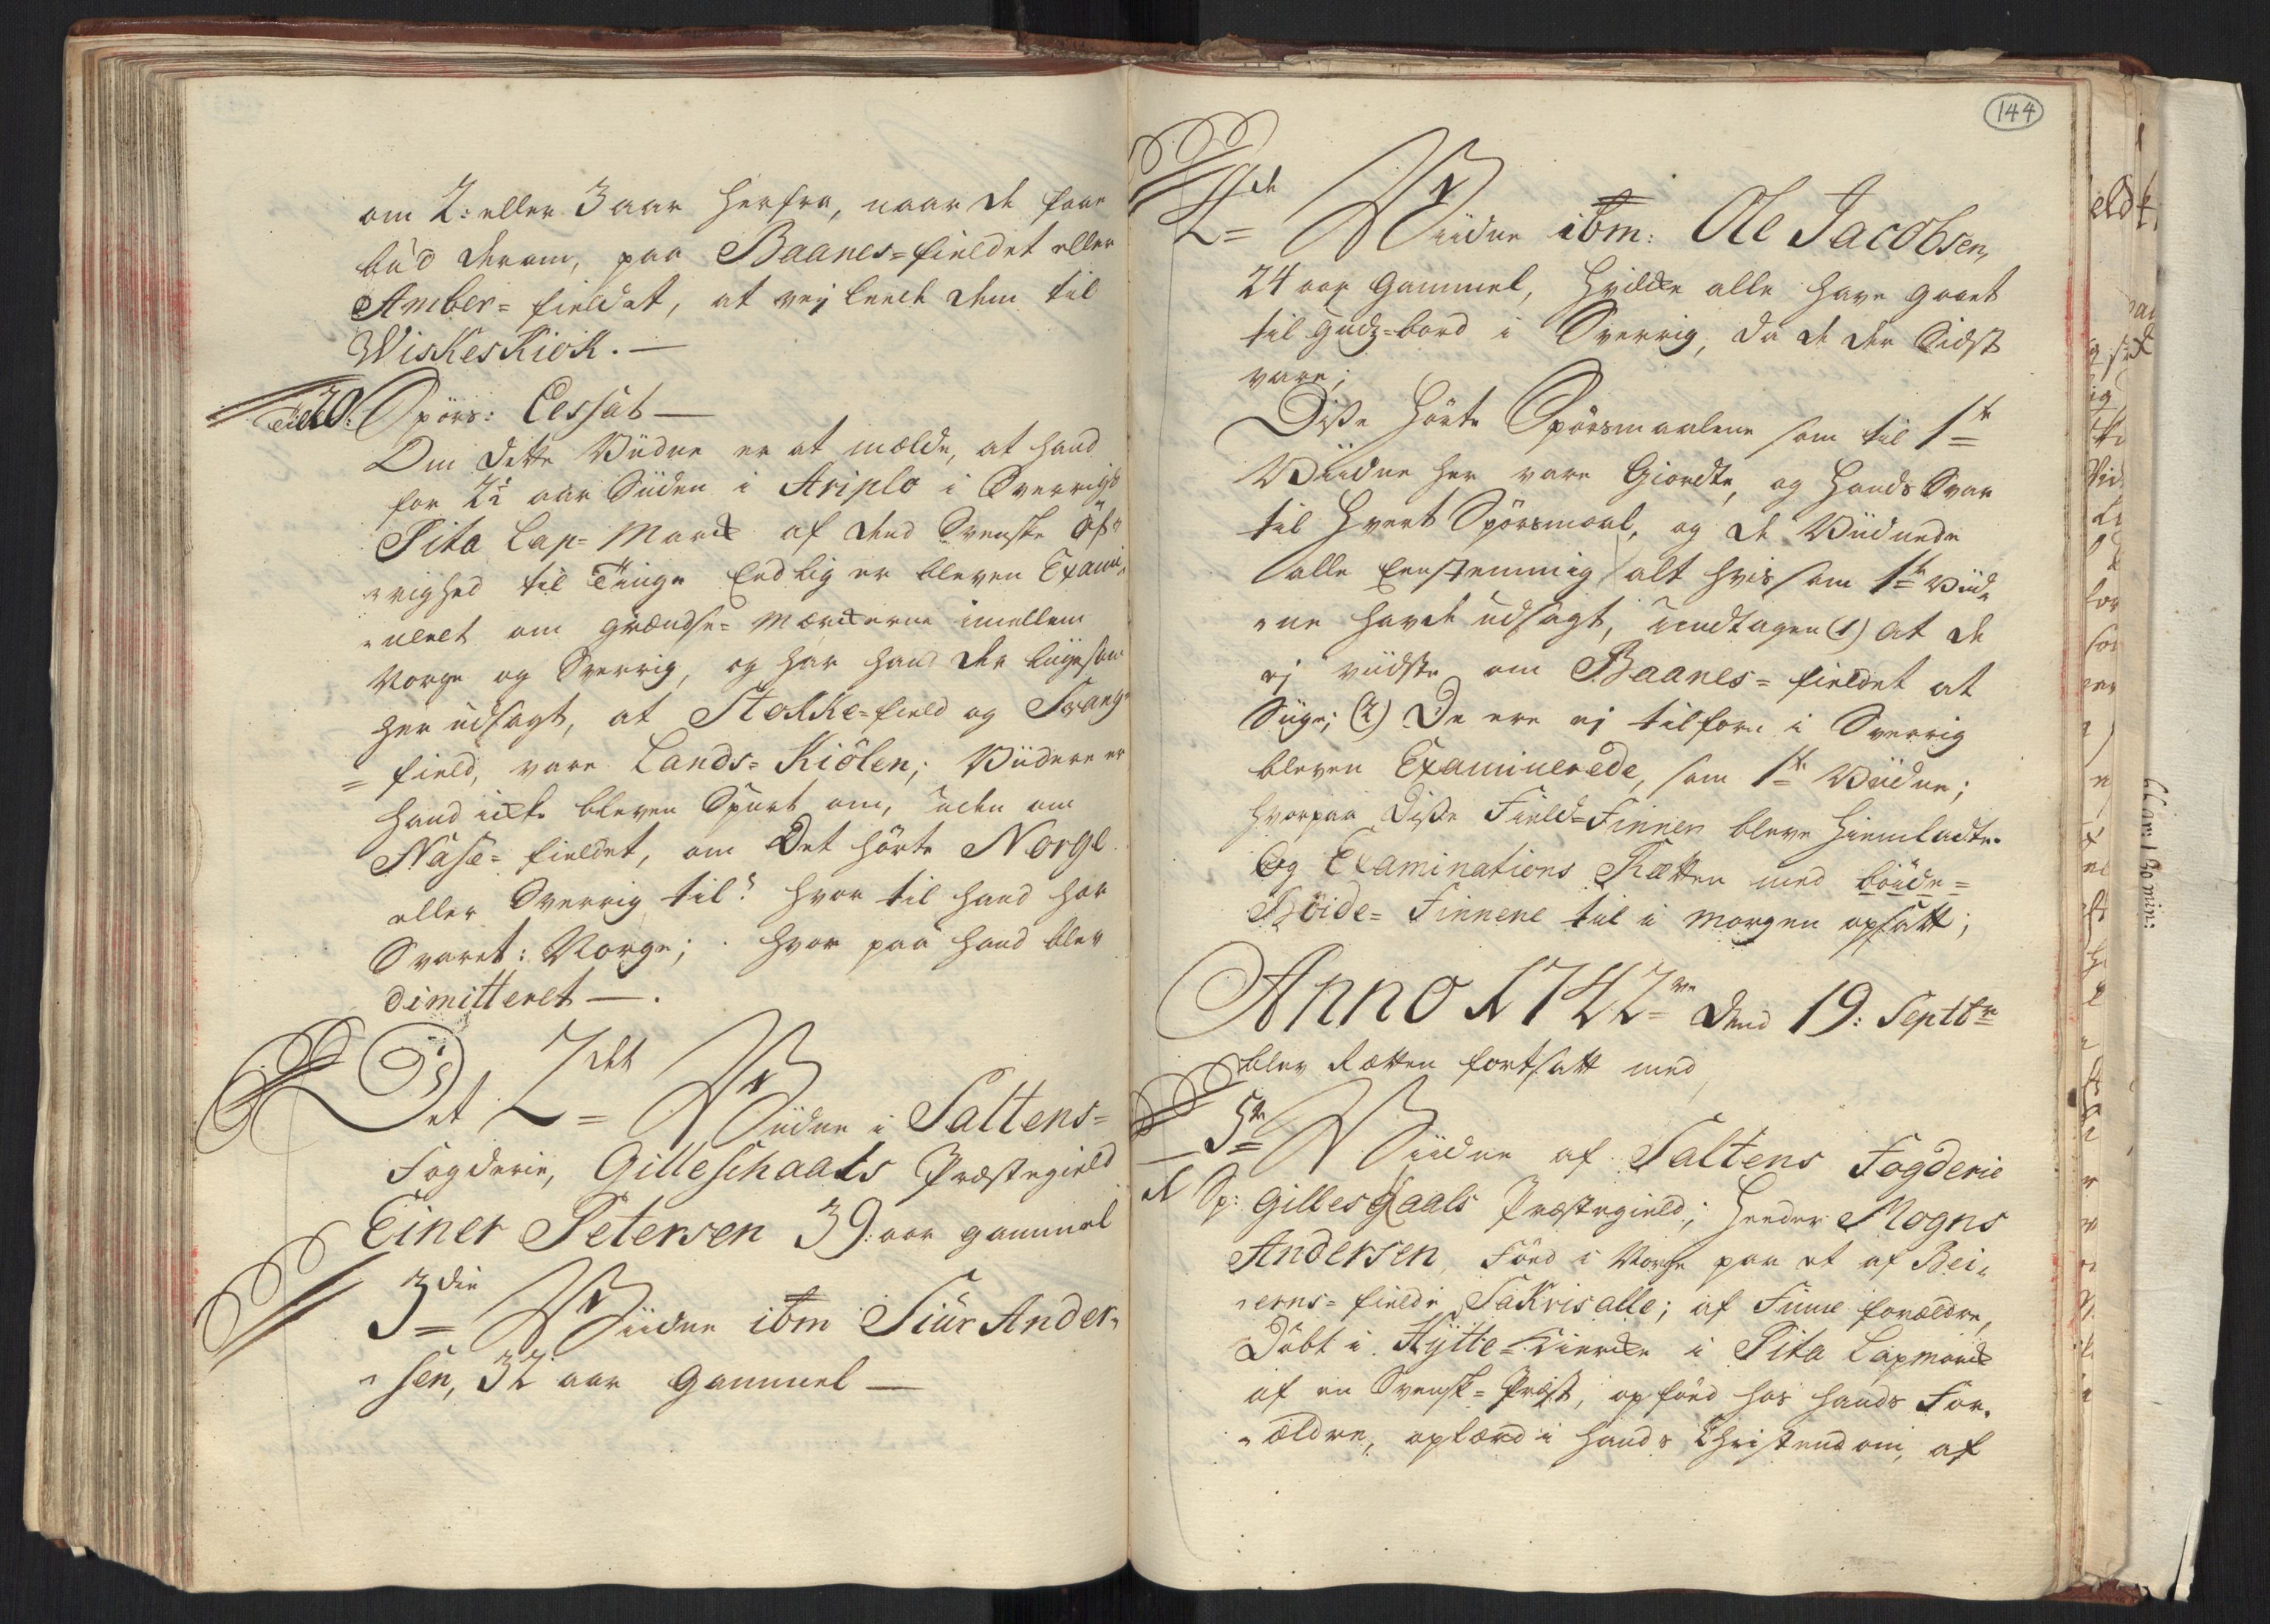 om 2: eller 3 aar herfra, naar de faar
bud derom, paa Baanes=fieldet eller
Amber=fieldet, at vej leede dem til
WiskesKiok. —
Til 20: Spörs: Cessat —
Om dette Viidne er at mælde, at hand
for 2½ aar Siiden i Ariplo i Sverrigs
Pita Lap=Mark af dend Svenske Öf„
„righed til Tinge Eedlig er bleven Exami„
„neret om grændse=Mærkerne imellem
Norge og Sverrig, og har hand der liigesom
her udsagt, at Stokke=field og Svang„
=field, vare Lands=Kiölen; Viidere er
hand icke bleven Spurt om, uden om
Nase=fieldet, om Det hörte Norge
eller Sverrig til? hvor til hand har
Svaret: Norge; hvor paa hand blev
dimitteret —.
Det 2det Viidne i Saltens=
Fogderie, Gilleschaals Præstegield
Einer Petersen 39: aar gammel
3die Viidne ibm Siur Ander„
„sen, 32 aar gammel —
144
4de Viidne ibm: Ole Jacobsen,
24 aar gammel, hvilcke alle have gaaet
til Gudz=bord i Sverrig, da de der Sidst
vare;
Diße hörte Spörsmaalene som til 1te
Viidne her vare Giordte, og hands Svar
til hvert Spörsmaal, og de Viidnede
alle Eenstemmig alt hvis som 1te Viid„
„ne havde udsagt, undtagen (1) at de
ej viidste om Baanes=fieldet at
Siige; (2) De ere ej tilforn i Sverrig
bleven Examinerede, som 1te Viidne;
hvorpaa Diße Field=Finner bleve hiemladte.
Og Examinations Rætten med böide=
Böide=Finnene til i morgen opsatt;
Anno 1742 dend 19: Septbr
blev Rætten fortsatt med
5te Viidne af Saltens Fogderie
Gillesgaals Præstegield; heeder Mogns
Andersen, Föed i Norge paa et af Bei„
„erns=fielde SaKrisalle; af Finne forældre,
Döbt i Hytte=Kiercke i Pita Lapmarck
af en Svensk=Præst, opföed hos hands For„
„ældre, oplærd i hands Christendom, af